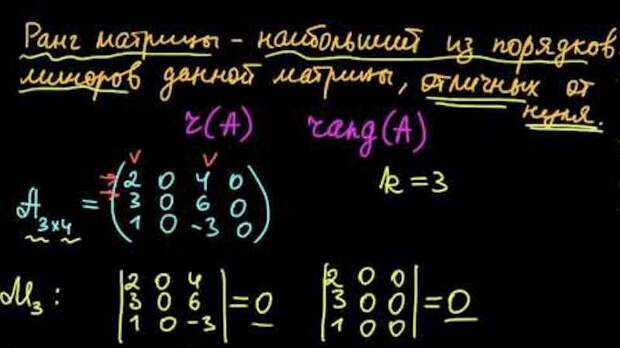 Ранг матрицы – наибольший из порядков
миноров данной матрицы, отличных от
нуля.
r(A) rang(A)
v v
A₃ₓ₄ = (2 0 4 0
3 0 6 0
1 0 -3 0)
k = 3
M₃: |2 0 4
3 0 6
1 0 -3| = 0
|2 0 0
3 0 0
1 0 0| = 0